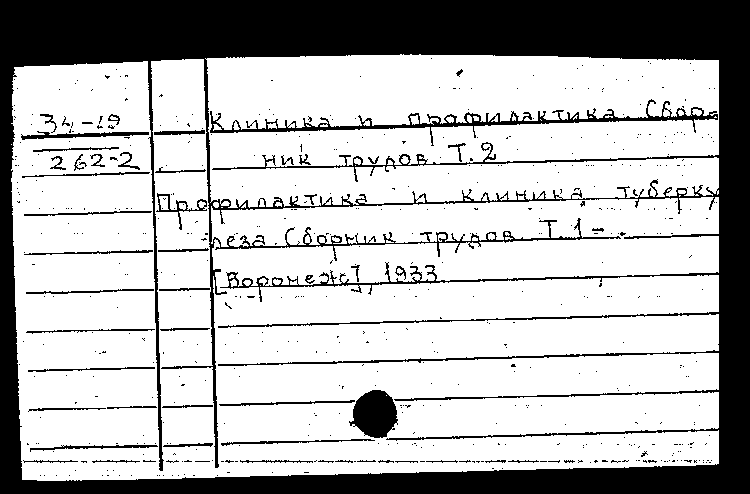 34-19
262-2
Клиника и профилактика. Сбор-
ник трудов. Т. 2
Профилактика и клиника туберку
леза. Сборник трудов. Т. 1 - .
[Воронеж], 1933.